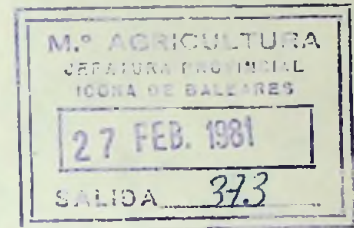 M.º AGRICULTURA
JEFATURA PROVINCIAL
ICONA DE BALEARES
27 FEB. 1981
SALIDA 373